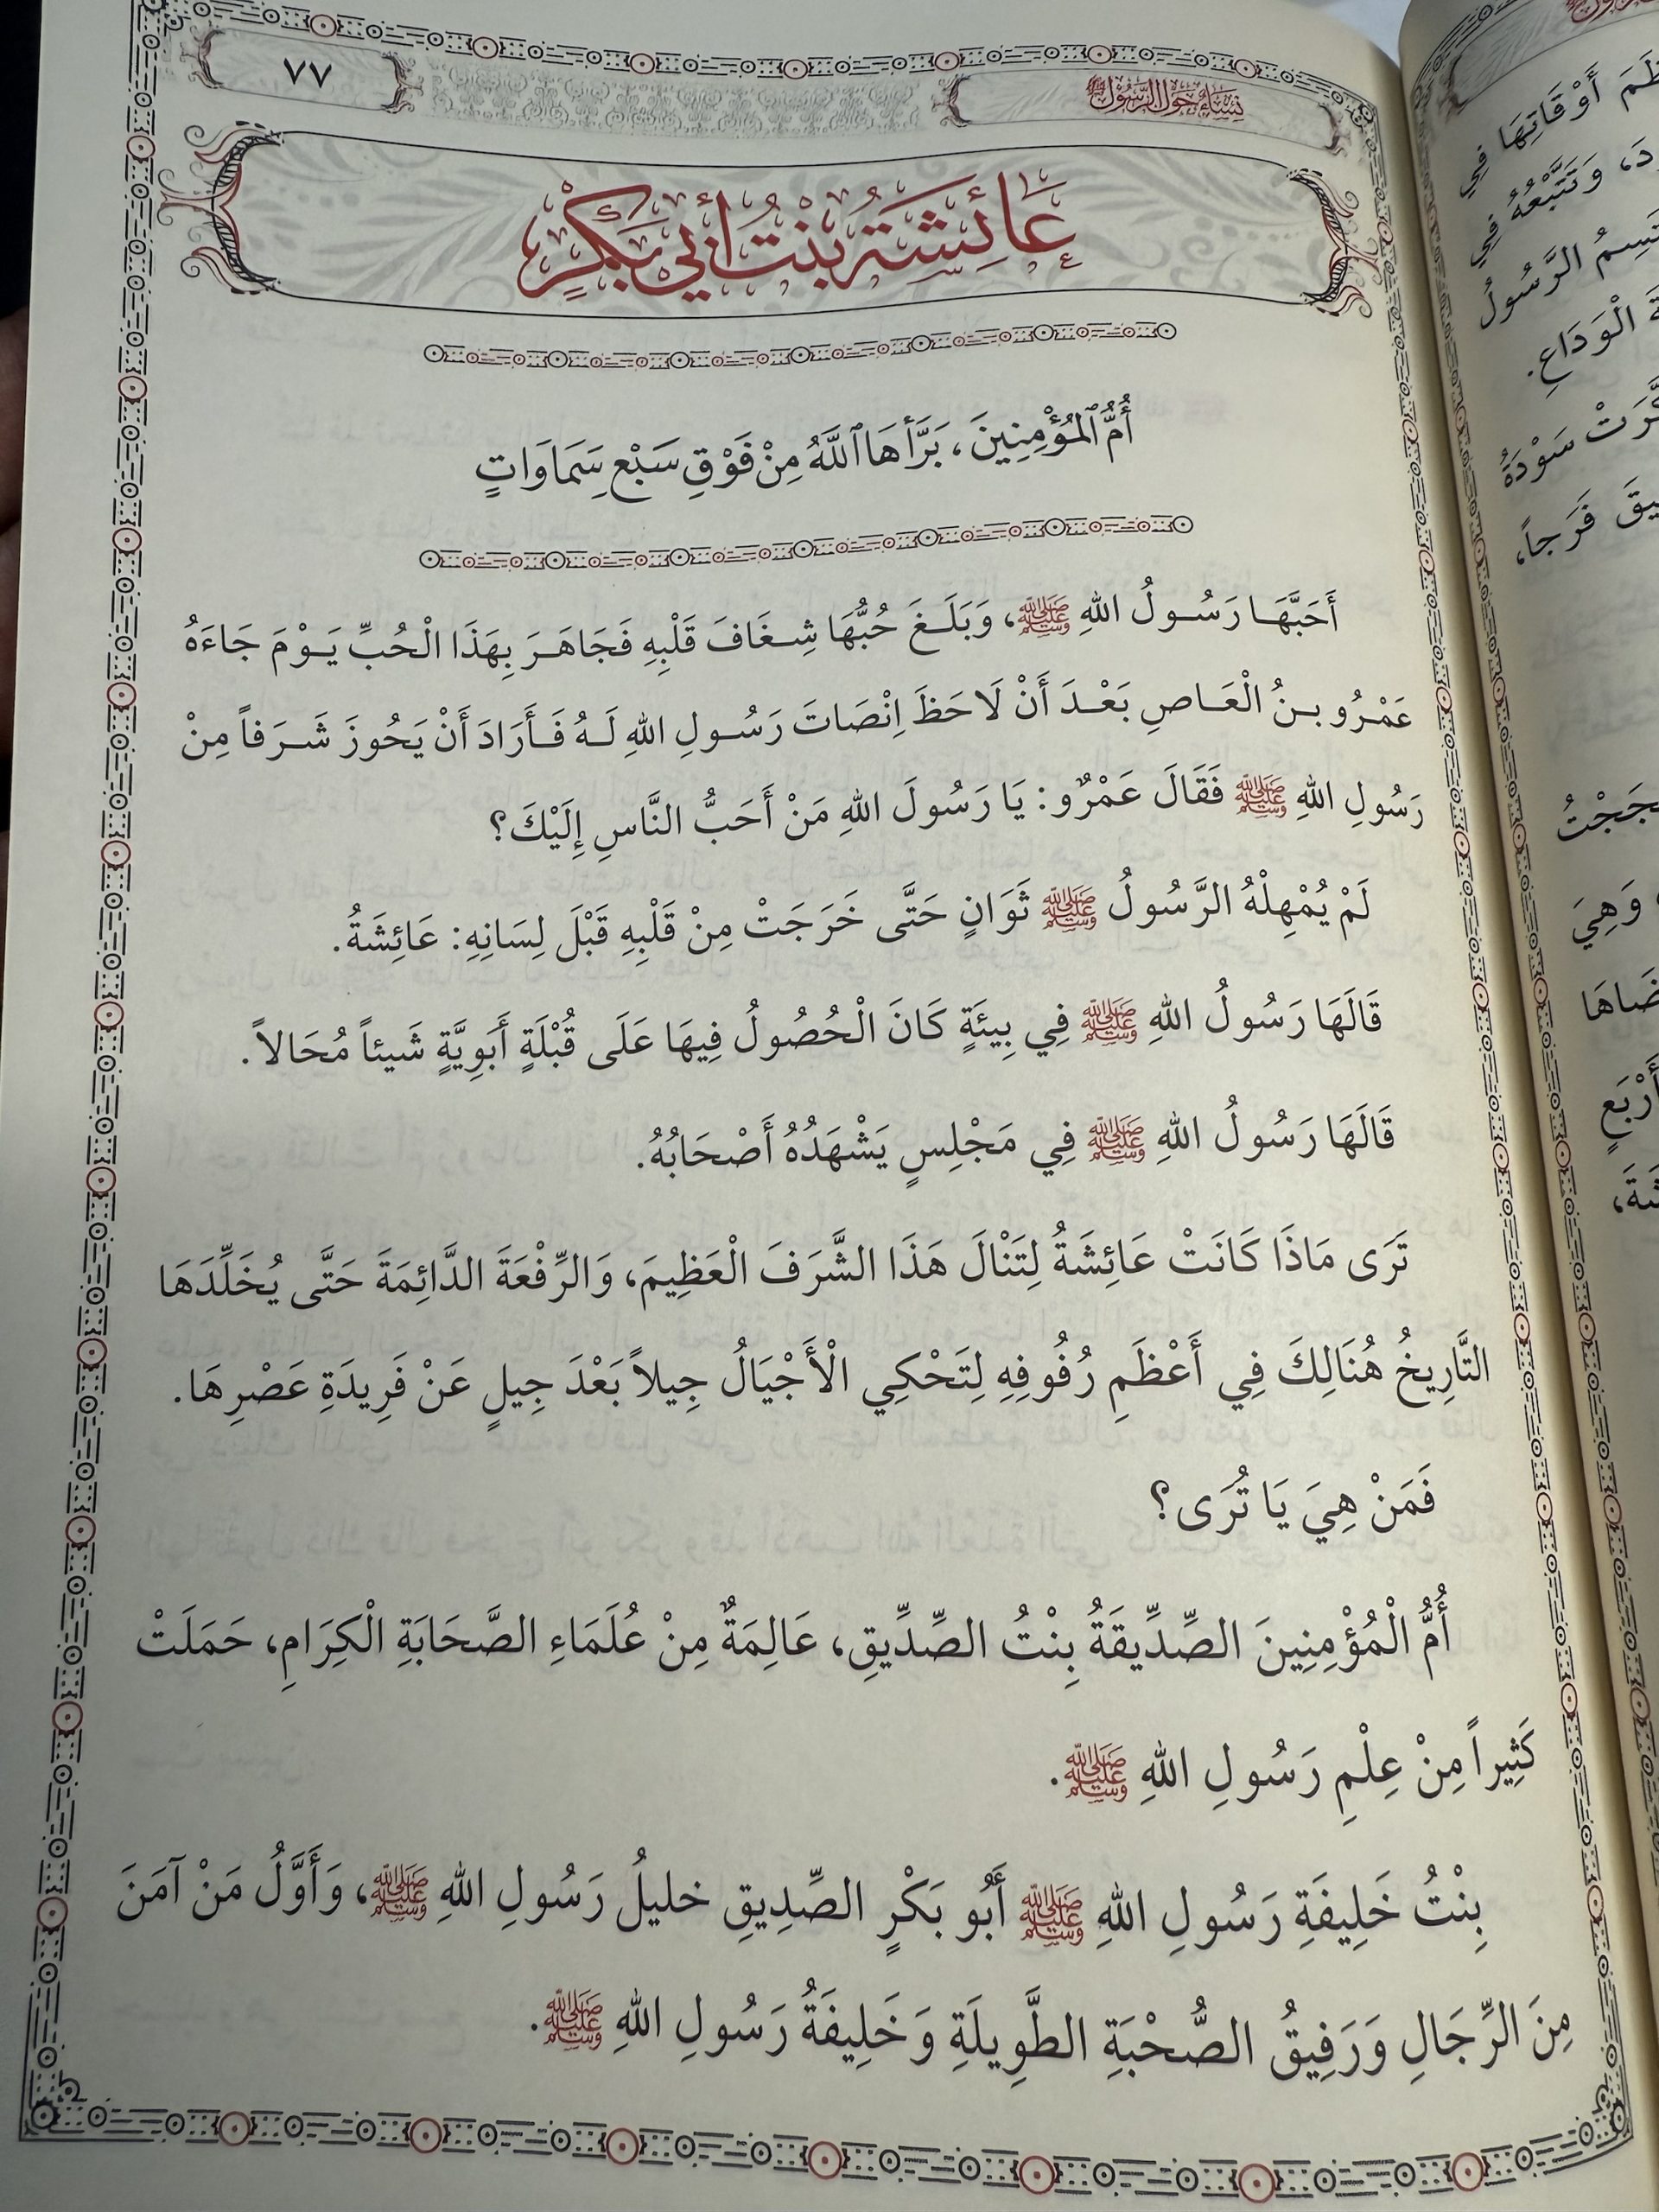 نِسَاءٌ حَوْلَ الرَّسُولِ ﷺ
٧٧
عَائِشَةُ بِنْتُ أَبِي بَكْرٍ
أُمُّ ٱلْمُؤْمِنِينَ، بَرَّأَهَا ٱللَّهُ مِنْ فَوْقِ سَبْعِ سَمَاوَاتٍ
أَحَبَّهَا رَسُولُ اللهِ ﷺ، وَبَلَغَ حُبُّهَا شِغَافَ قَلْبِهِ فَجَاهَرَ بِهَذَا الْحُبِّ يَوْمَ جَاءَهُ
عَمْرُو بنُ الْعَاصِ بَعْدَ أَنْ لَاحَظَ اِنْصَاتَ رَسُولِ اللهِ لَهُ فَأَرَادَ أَنْ يَحُوزَ شَرَفاً مِنْ
رَسُولِ اللهِ ﷺ فَقَالَ عَمْرٌو: يَا رَسُولَ اللهِ مَنْ أَحَبُّ النَّاسِ إِلَيْكَ؟
لَمْ يُمْهِلْهُ الرَّسُولُ ﷺ ثَوَانٍ حَتَّى خَرَجَتْ مِنْ قَلْبِهِ قَبْلَ لِسَانِهِ: عَائِشَةُ.
قَالَهَا رَسُولُ اللهِ ﷺ فِي بِيئَةٍ كَانَ الْحُصُولُ فِيهَا عَلَى قُبْلَةٍ أَبَوِيَّةٍ شَيئاً مُحَالاً.
قَالَهَا رَسُولُ اللهِ ﷺ فِي مَجْلِسٍ يَشْهَدُهُ أَصْحَابُهُ.
تَرَى مَاذَا كَانَتْ عَائِشَةُ لِتَنْالَ هَذَا الشَّرَفَ الْعَظِيمَ، وَالرِّفْعَةَ الدَّائِمَةَ حَتَّى يُخَلِّدَهَا
التَّارِيخُ هُنَالِكَ فِي أَعْظَمِ رُفُوفِهِ لِتَحْكِي الْأَجْيَالُ جِيلاً بَعْدَ جِيلٍ عَنْ فَرِيدَةِ عَصْرِهَا.
فَمَنْ هِيَ يَا تُرَى؟
أُمُّ الْمُؤْمِنِينَ الصِّدِّيقَةُ بِنْتُ الصِّدِّيقِ، عَالِمَةٌ مِنْ عُلَمَاءِ الصَّحَابَةِ الْكِرَامِ، حَمَلَتْ
كَثِيراً مِنْ عِلْمِ رَسُولِ اللهِ ﷺ.
بِنْتُ خَلِيفَةِ رَسُولِ اللهِ ﷺ أَبُو بَكْرٍ الصِّدِيقِ خليلُ رَسُولِ اللهِ ﷺ، وَأَوَّلُ مَنْ آمَنَ
مِنَ الرِّجَالِ وَرَفِيقُ الصُّحْبَةِ الطَّوِيلَةِ وَخَلِيفَةُ رَسُولِ اللهِ ﷺ.
أَوْقَاتِهَا فِي
وَتَتَّبْعُهُ فِي
الرَّسُولُ
الْوَدَاعِ.
سَوْدَةُ
فَرَجاً،
وَهِيَ